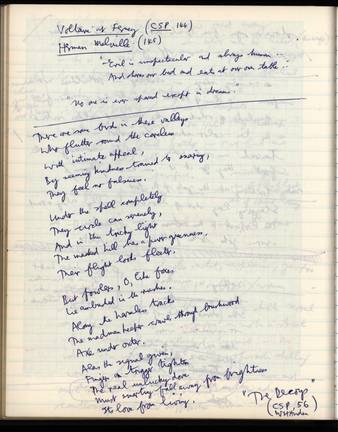 Voltaire at Ferney (CSP 144)
Herman Melville (145)
"Evil is unspectacular and always human...
And shares our bed and eats at our own table..."
"No one is ever spared except in dreams."
There are some birds in these valleys
Who flutter round the careless
With intimate appeal,
By seeming kindness trained to snaring,
They feel no falseness.
Under the spell completely
They circle can serenely,
And in the tricky light
The masked hill has a purer greenness.
Their flight looks fleeter.
But fowlers, O, like foxes,
Lie ambushed in the rushes.
Along the harmless tracks
The madman keeper crawls through brushwood
Axe under oxter.
Alas the signal given,
Fingers on trigger tighten.
The real unlucky dove
Must smarting fall away from brightness
Its love from living.
"The Decoys"
(CSP, 56)
WHAuden